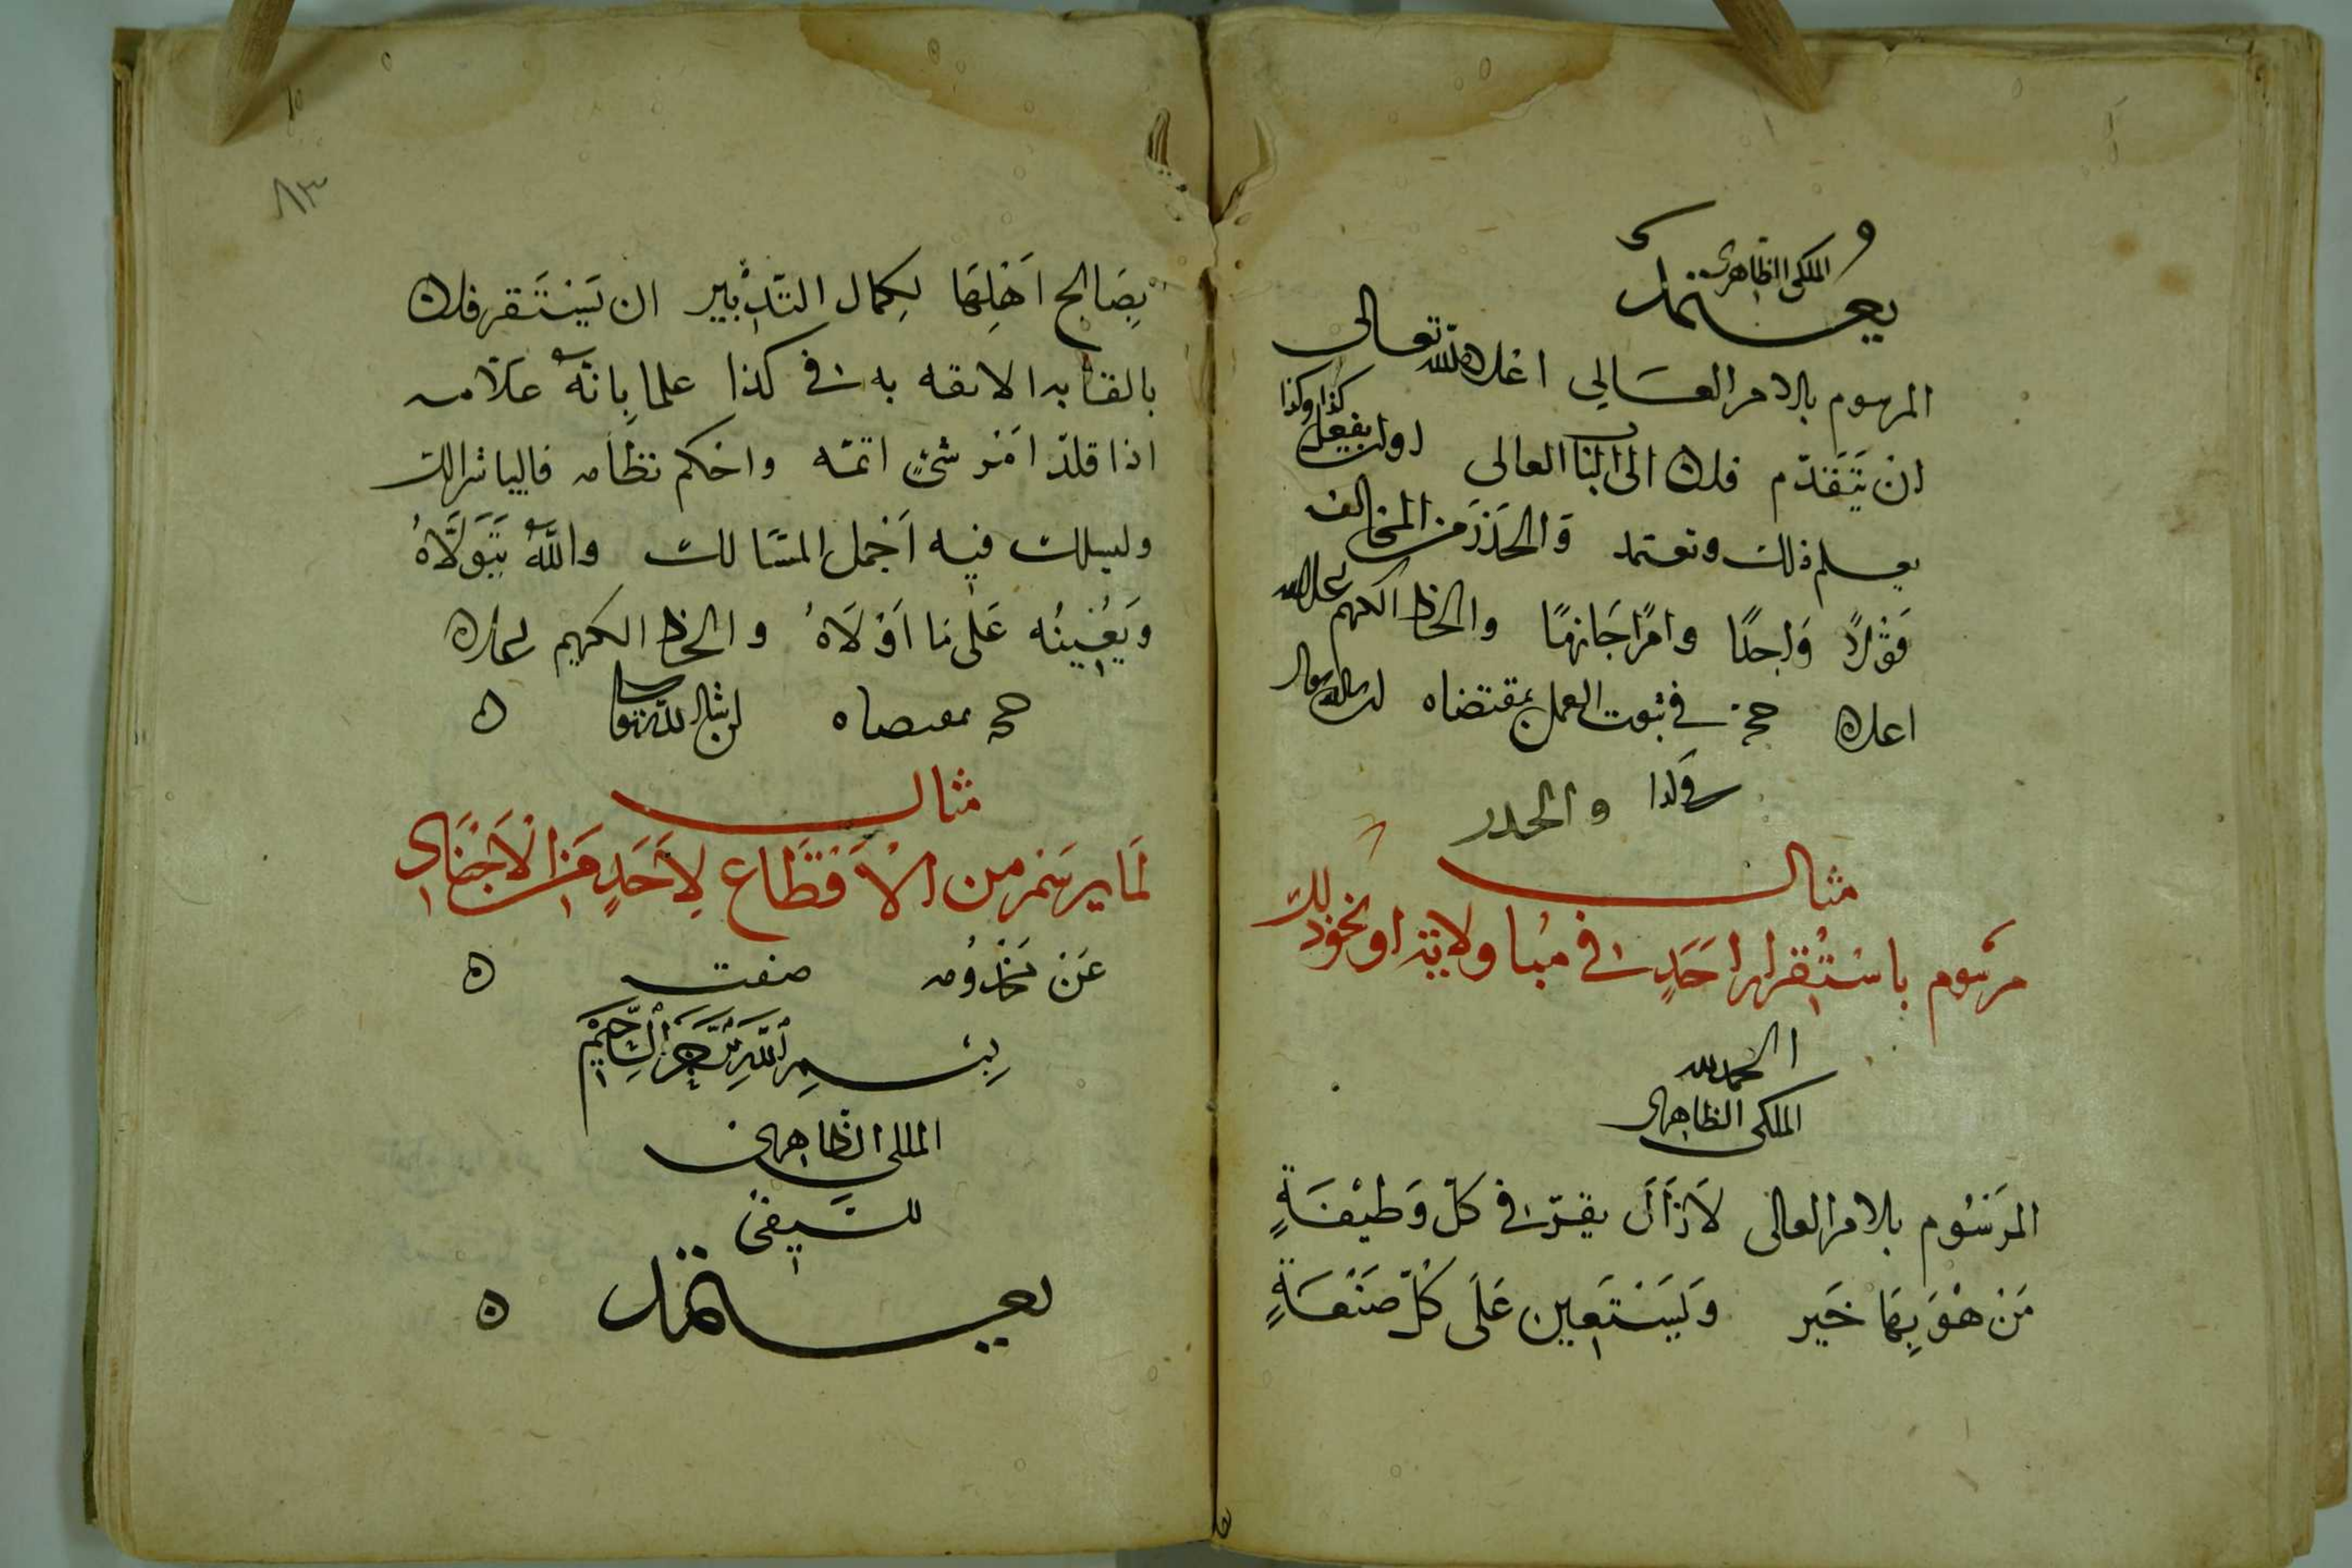 الملكي الظاهرى
يعتمد
المرسوم بالامر العالي اعلاه الله تعالى
ان يتقدم فلان الى البا العالى او ليفعل كذا وكذا
يعلم ذلك ويعتمد والحذر من المخالف
قولا واحدا وامرا جازما والخط الكريم
اعلاه حجة في ثبوت العمل بمقتضاه
والحدر
مثال
مرسوم باستقرار احد في مباولاية او نحو ذلك
الحمد لله
الملكي الظاهرى
المرسوم بالامر العالى لا زال يقر في كل وظيفة
من هو بها خير ويستعين على كل صنعة
٨٣
بصالح اهلها لكمال التدبير ان يستقر فلان
به في كذا علما بانه علامه
اذا قلد امر شئ اتمه واحكم نظامه فاليباشر ذلك
وليسلك فيه اجمل المسالك والله يتولاه
ويعينه على ما اولاه والخط الكريم اعلاه
حجه بمقتضاه ان شا الله تعالى ه
مثال
لما يرسم من الاقطاع لاحد من الاجناد
عن مخدومه صفت ه
بسم الله الرحمن الرحيم
الملكي الظاهرى
السيفى
يعتمد ه